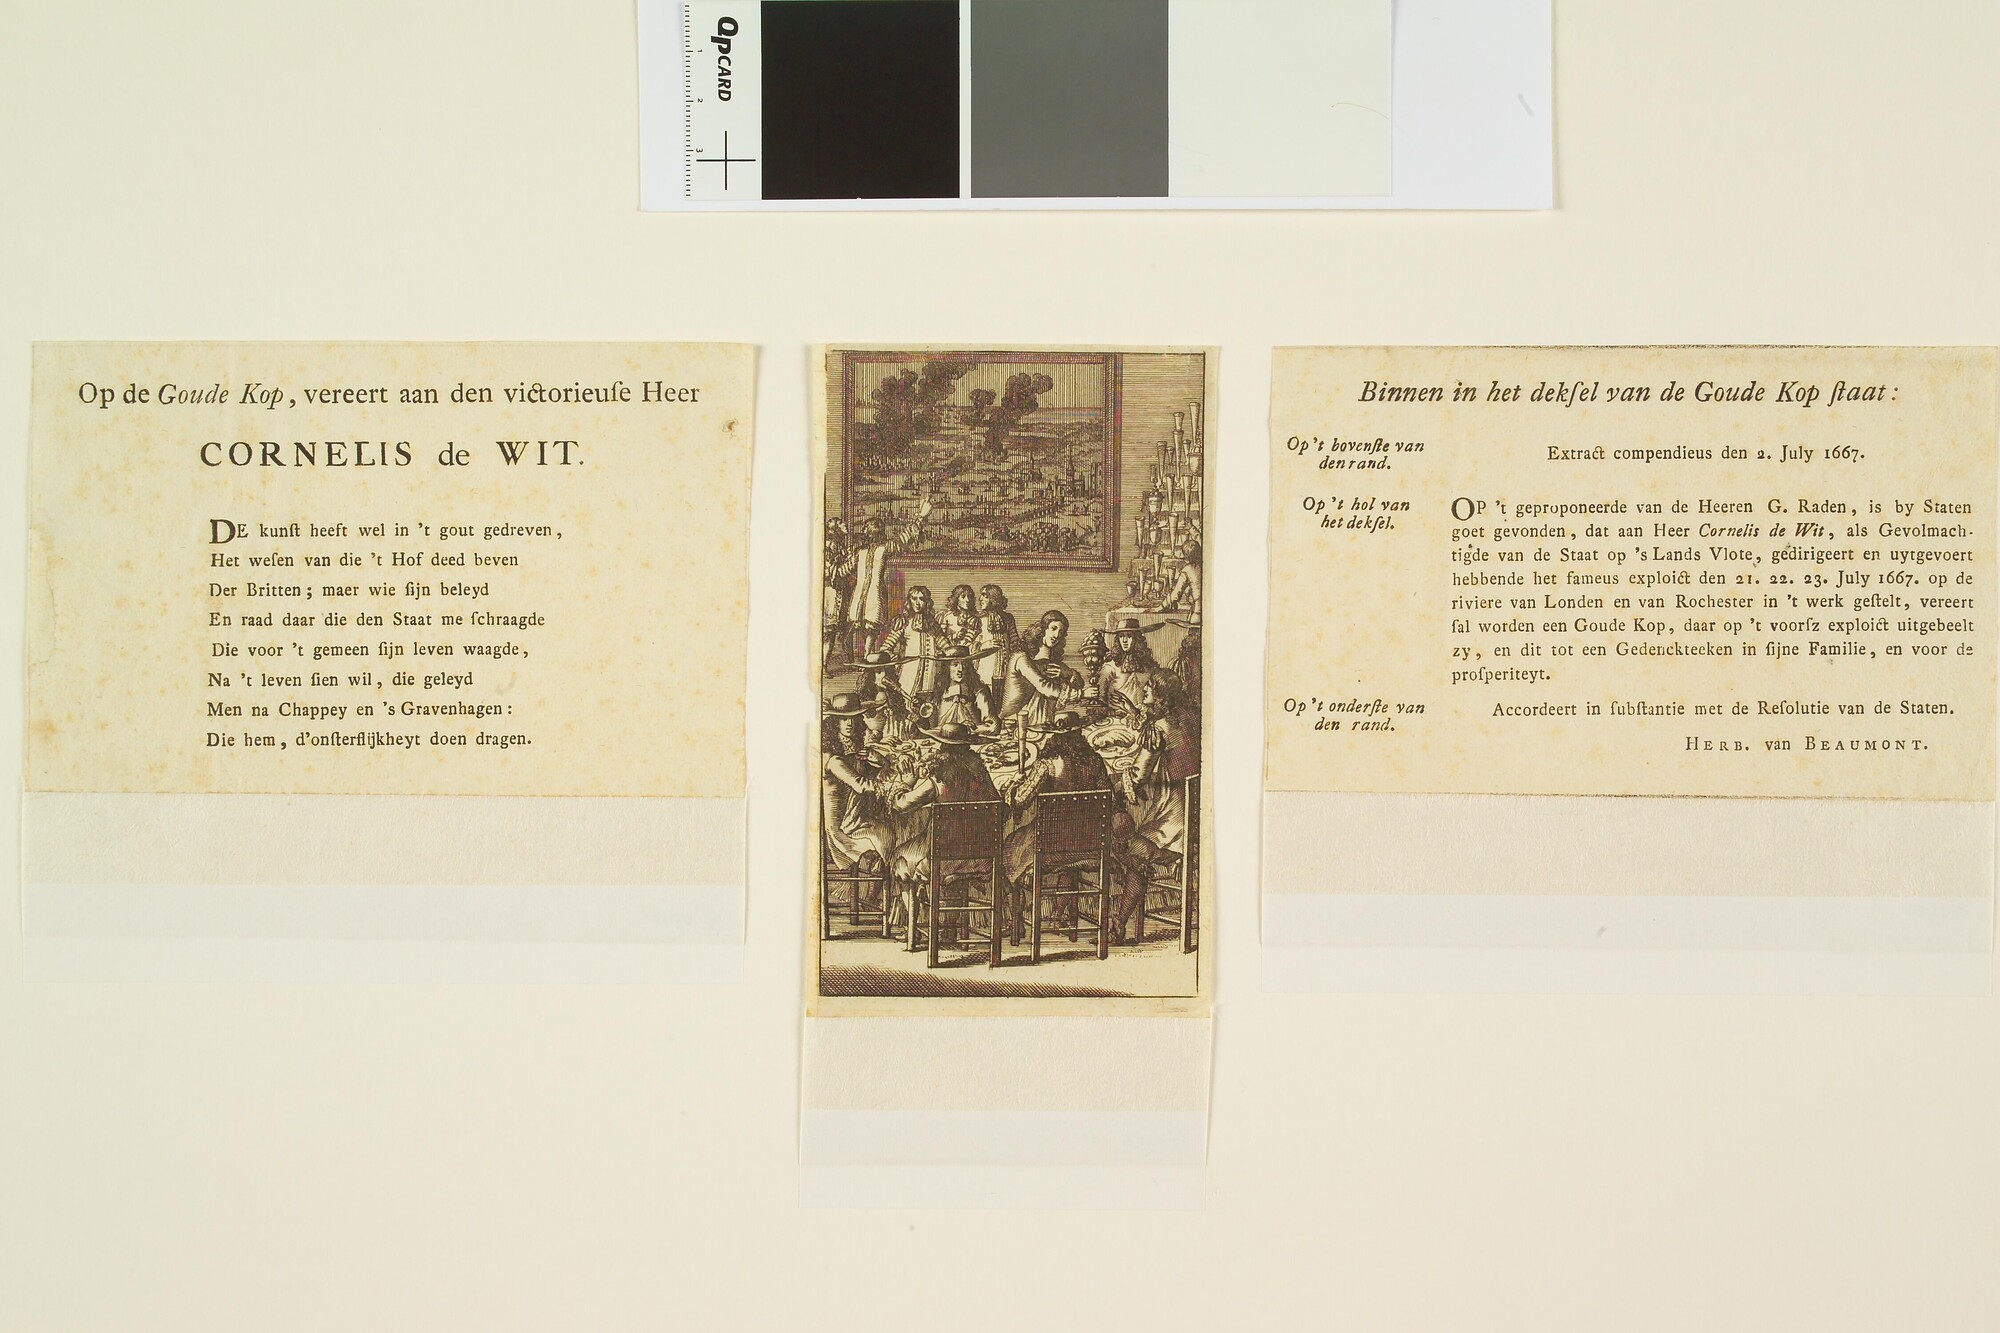 QPCARD
1
2
3
Op de Goude Kop, vereert aan den victorieuſe Heer
CORNELIS de WIT.
DE kunſt heeft wel in 't gout gedreven,
Het weſen van die 't Hof deed beven
Der Britten; maer wie ſijn beleyd
En raad daar die den Staat me ſchraagde
Die voor 't gemeen ſijn leven waagde,
Na 't leven ſien wil, die geleyd
Men na Chappey en 's Gravenhagen:
Die hem, d'onſterflijkheyt doen dragen.
Binnen in het dekſel van de Goude Kop ſtaat:
Op 't bovenſte van
den rand.
Extract compendieus den 2. July 1667.
Op 't hol van
het dekſel.
OP 't geproponeerde van de Heeren G. Raden, is by Staten
goet gevonden, dat aan Heer Cornelis de Wit, als Gevolmach-
tigde van de Staat op 's Lands Vlote, gedirigeert en uytgevoert
hebbende het fameus exploict den 21. 22. 23. July 1667. op de
riviere van Londen en van Rocheſter in 't werk geſtelt, vereert
ſal worden een Goude Kop, daar op 't voorſz exploict uitgebeelt
zy, en dit tot een Gedenckteeken in ſijne Familie, en voor de
proſperiteyt.
Op 't onderſte van
den rand.
Accordeert in ſubſtantie met de Reſolutie van de Staten.
HERB. van BEAUMONT.